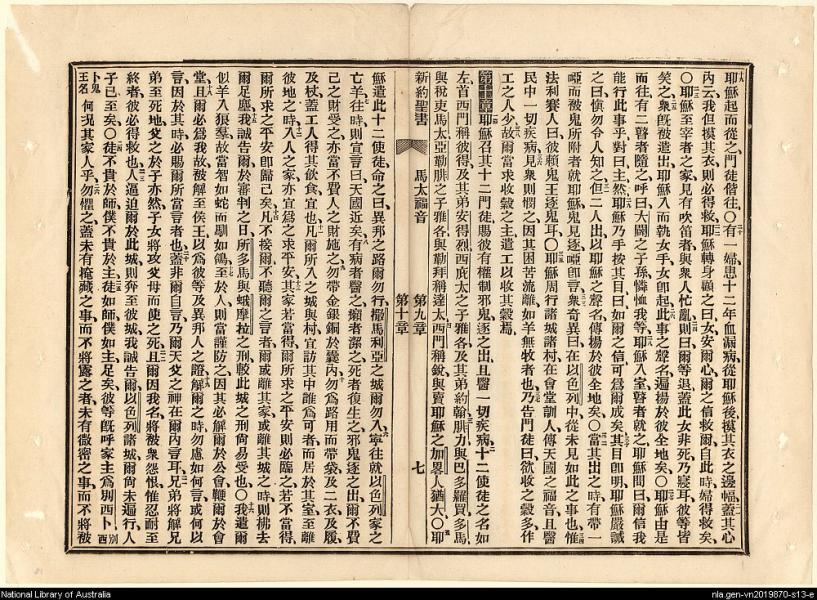 耶穌起而從之門徒偕往○有一婦患十二年血漏病從耶穌後摸其衣之邊幅蓋其心
內云我但摸其衣則必得救耶穌轉身顧之曰女安爾心爾之信救爾自此時婦得救矣
○耶穌至宰者之家見有吹笛者與衆人忙亂則曰爾等退蓋此女非死乃寢耳彼等皆
之衆既被遣出耶穌入而執女手女卽起此事之聲名遍揚於彼全地矣○耶穌由是
而往有二瞽者隨之呼曰大闢之子孫憐恤我等耶穌入室瞽者就之耶穌問曰爾信我
能行此事乎對曰主然耶穌乃手按其目曰如爾之信可爲爾成矣其目卽明耶穌嚴誡
之曰愼勿令人知之但二人出以耶穌之聲名傳揚於彼全地矣○當其出之時有帶一
啞而被鬼所附者就耶穌鬼見逐啞卽言衆奇異曰在以色列中從未見如此之事也惟
法利賽人曰彼賴鬼王逐鬼耳○耶穌周行諸城諸村在會堂訓人傳天國之福音且醫
民中一切疾病見衆則憫之因其困苦流離如羊無牧者也乃告門徒曰欲收之穀多作
工之人少故爾當求收穀之主遣工以收其穀焉
第十章耶穌召其十二門徒賜彼有權制邪鬼逐之出且醫一切疾病十二使徒之名如
左首西門稱彼得及其弟安得烈西庇太之子雅各及其弟約翰腓力與巴多羅買多馬
與稅吏馬太亞勒腓之子雅各與勒拜稱達太西門稱銳與賣耶穌之加畧人猶大○耶
新約聖書 馬太福音 第九章 第十章 七
穌遣此十二使徒命之曰異邦之路爾勿行撒馬利亞之城爾勿入寧往就以色列家之
亡羊往時則宣言曰天國近矣有病者醫之癩者潔之死者復生之邪鬼逐之出爾不費
己之財受之亦當不費人之財施之勿帶金銀銅於囊內勿爲路用而帶袋及二衣及履
及杖蓋工人得其飲食宜也凡爾所入之城與村宜訪其中誰爲可者而居於其室至離
彼地之時入人之家亦宜爲之求平安其家若當得爾所求之平安則必臨之若不當得
爾所求之平安卽歸己矣凡不接爾不聽爾之言者爾或離其家或離其城之時則拂去
爾足塵我誠告爾於審判之日所多馬與蛾摩拉之刑較此城之刑尙易受也○我遣爾
似羊入狼羣故當智如蛇而馴如鴿至於人則當謹防之因其必解爾於公會鞭爾於會
堂且爾必爲我故被解至侯王以爲彼等及異邦人之證解爾之時勿慮如何言或何以
言因於其時必賜爾所當言者也蓋非爾自言乃爾天父之神在爾內言耳兄弟將解兄
弟至死地父之於子亦然子女將攻父母而使之死且爾因我名將被衆怨恨惟忍耐至
終者彼必得救也人逼迫爾於此城則奔至彼城我誠告爾以色列諸城爾尙未遍行人
子已至矣○徒不貴於師僕不貴於主徒如師僕如主足矣彼等既呼家主爲別西卜別西
卜鬼王名何況其家人乎勿懼之蓋未有掩藏之事而不將露之者未有微密之事而不將被
National Library of Australia
nla.gen-vn2019870-s13-e